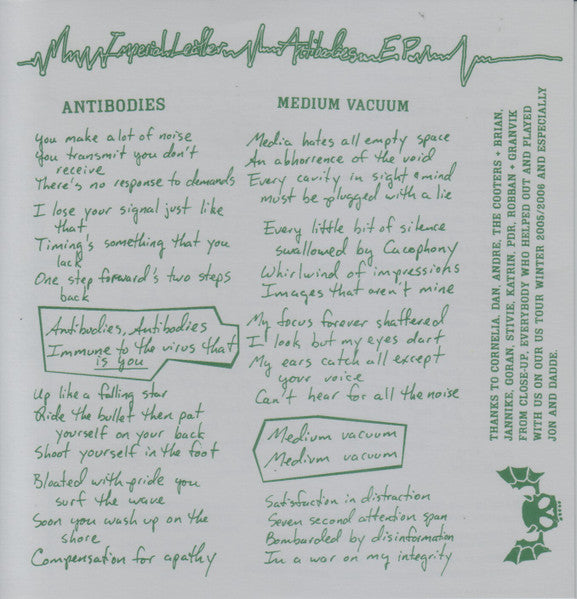 Imperial Leather Antibodies E.P.
ANTIBODIES
You make a lot of noise
You transmit you don't
receive
There's no response to demands
I lose your signal just like
that
Timing's something that you
lack
One step forward's two steps
back
Antibodies, Antibodies
Immune to the virus that
is you
Up like a falling star
Ride the bullet then pat
yourself on your back
Shoot yourself in the foot
Bloated with pride you
surf the wave
Soon you wash up on the
shore
Compensation for apathy
MEDIUM VACUUM
Media hates all empty space
An abhorrence of the void
Every cavity in sight & mind
must be plugged with a lie
Every little bit of silence
swallowed by Cacophony
Whirlwind of impressions
Images that aren't mine
My focus forever shattered
I look but my eyes dart
My ears catch all except
your voice
Can't hear for all the noise
Medium vacuum
Medium vacuum
Satisfaction in distraction
Seven second attention span
Bombarded by disinformation
In a war on my integrity
THANKS TO CORNELIA, DAN, ANDRE, THE COOTERS + BRIAN,
JANNIKE, GORAN, STIVIE, KATRIN, PDR, ROBBAN + GRANVIK
FROM CLOSE-UP, EVERYBODY WHO HELPED OUT AND PLAYED
WITH US ON OUR US TOUR WINTER 2005/2006 AND ESPECIALLY
JON AND DADDE.